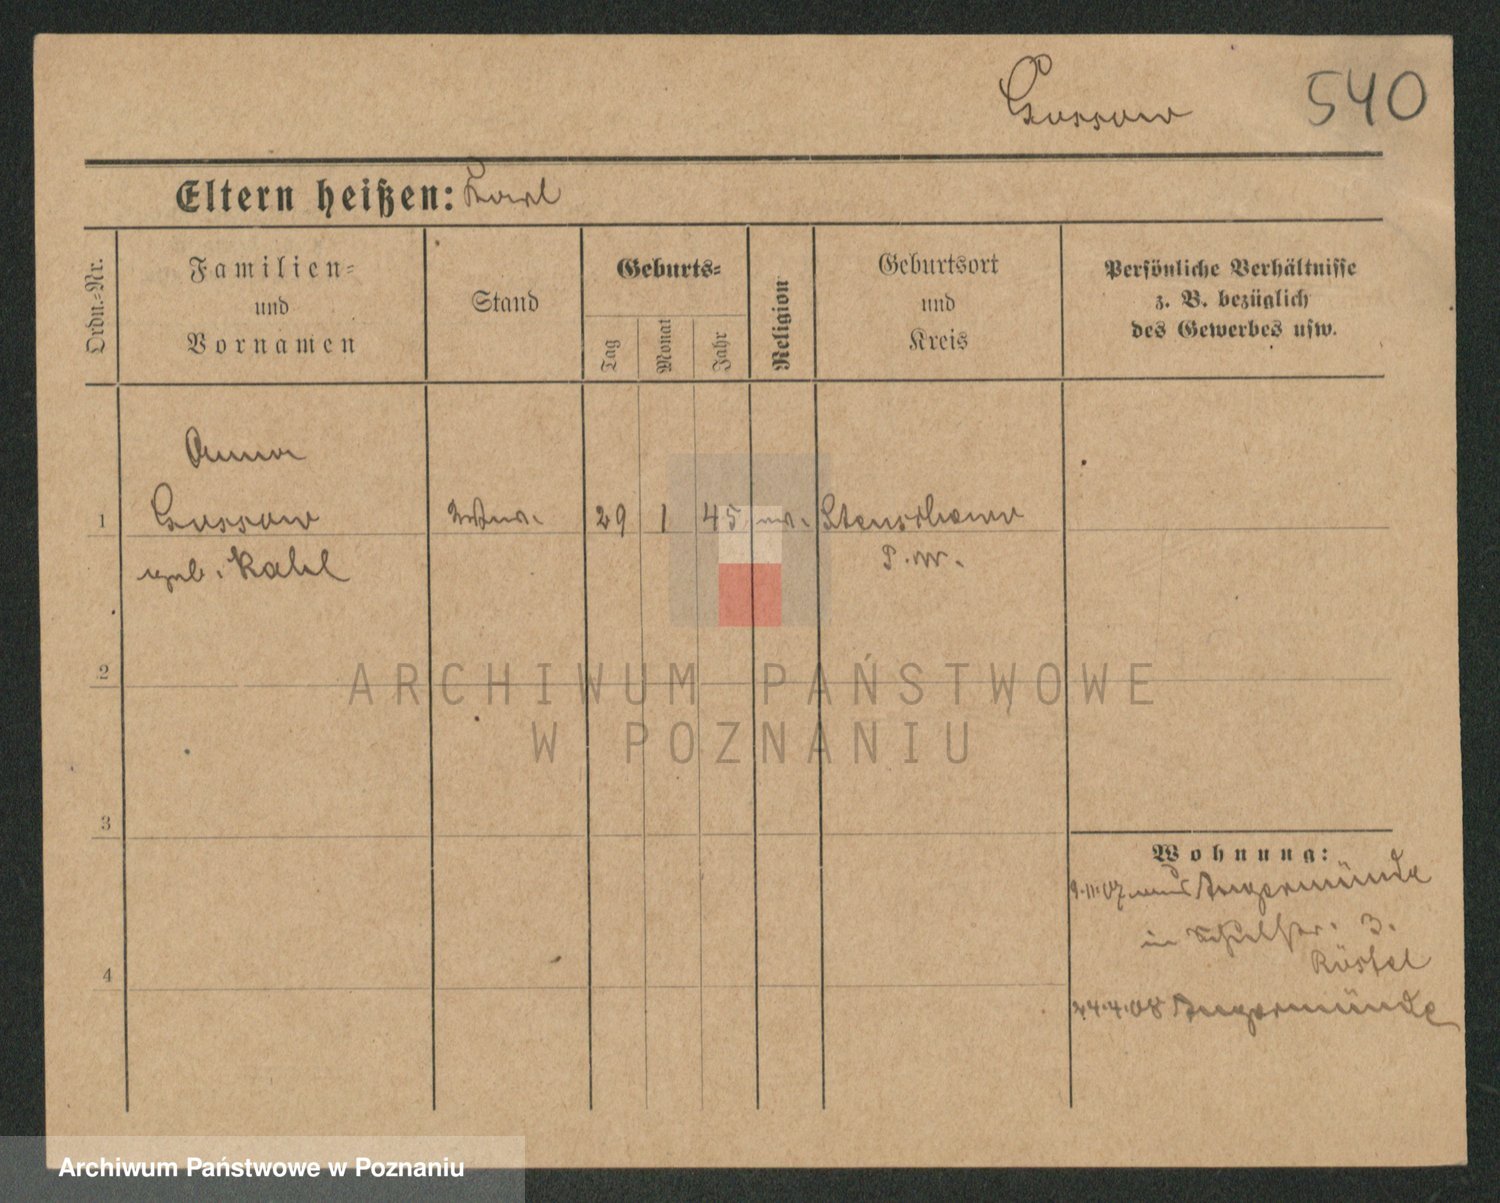 Gossow 540
Eltern heißen: Karl
Ordn.-Nr.
Familien-
und
Vornamen
Stand
Geburts-
Tag
Monat
Jahr
Religion
Geburtsort
und
Kreis
Persönliche Verhältnisse
z. B. bezüglich
des Gewerbes usw.
Anna
1 Gossow Wwe. 29 1 45 ev.
geb. Kahl P.W.
2
3
4
Wohnung:
9.11.07 aus Angermünde
in Schulstr. 3.
Röstel
24.4.08 Angermünde
ARCHIWUM PAŃSTWOWE
W POZNANIU
Archiwum Państwowe w Poznaniu